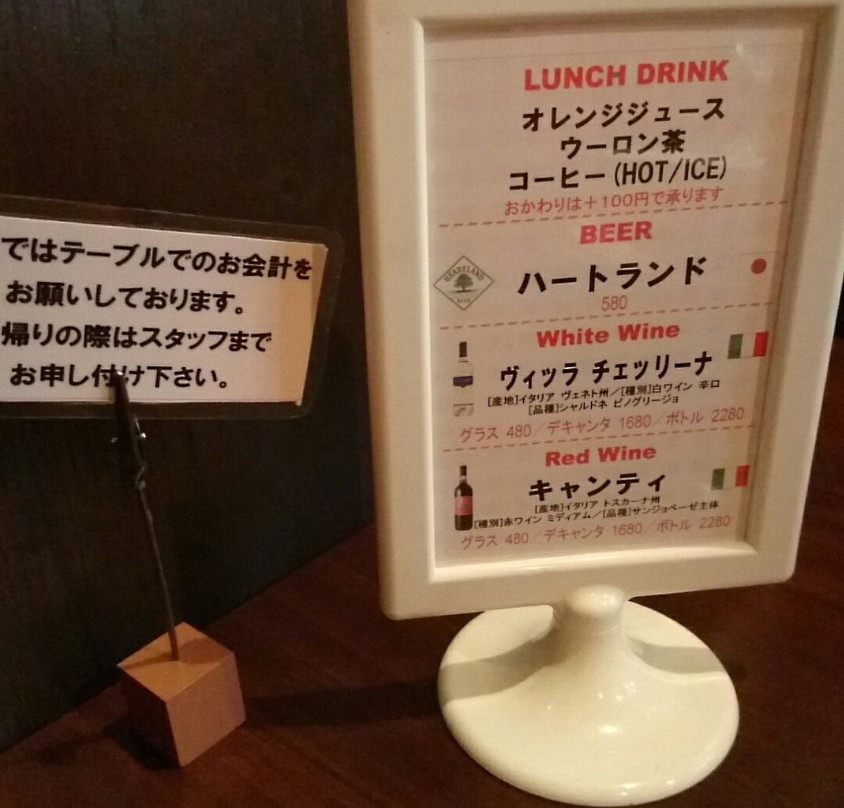 ではテーブルでのお会計を
お願いしております。
帰りの際はスタッフまで
お申し付け下さい。
LUNCH DRINK
オレンジジュース
ウーロン茶
コーヒー(HOT/ICE)
おかわりは+100円で承ります
BEER
HEARTLAND
BEER
ハートランド
580
White Wine
ヴィッラ チェッリーナ
[産地]イタリア ヴェネト州/[種別]白ワイン 辛口
[品種]シャルドネ ピノグリージョ
グラス 480/デキャンタ 1680/ボトル 2280
Red Wine
キャンティ
[産地]イタリア トスカーナ州
[種別]赤ワイン ミディアム/[品種]サンジョベーゼ主体
グラス 480/デキャンタ 1680/ボトル 2280